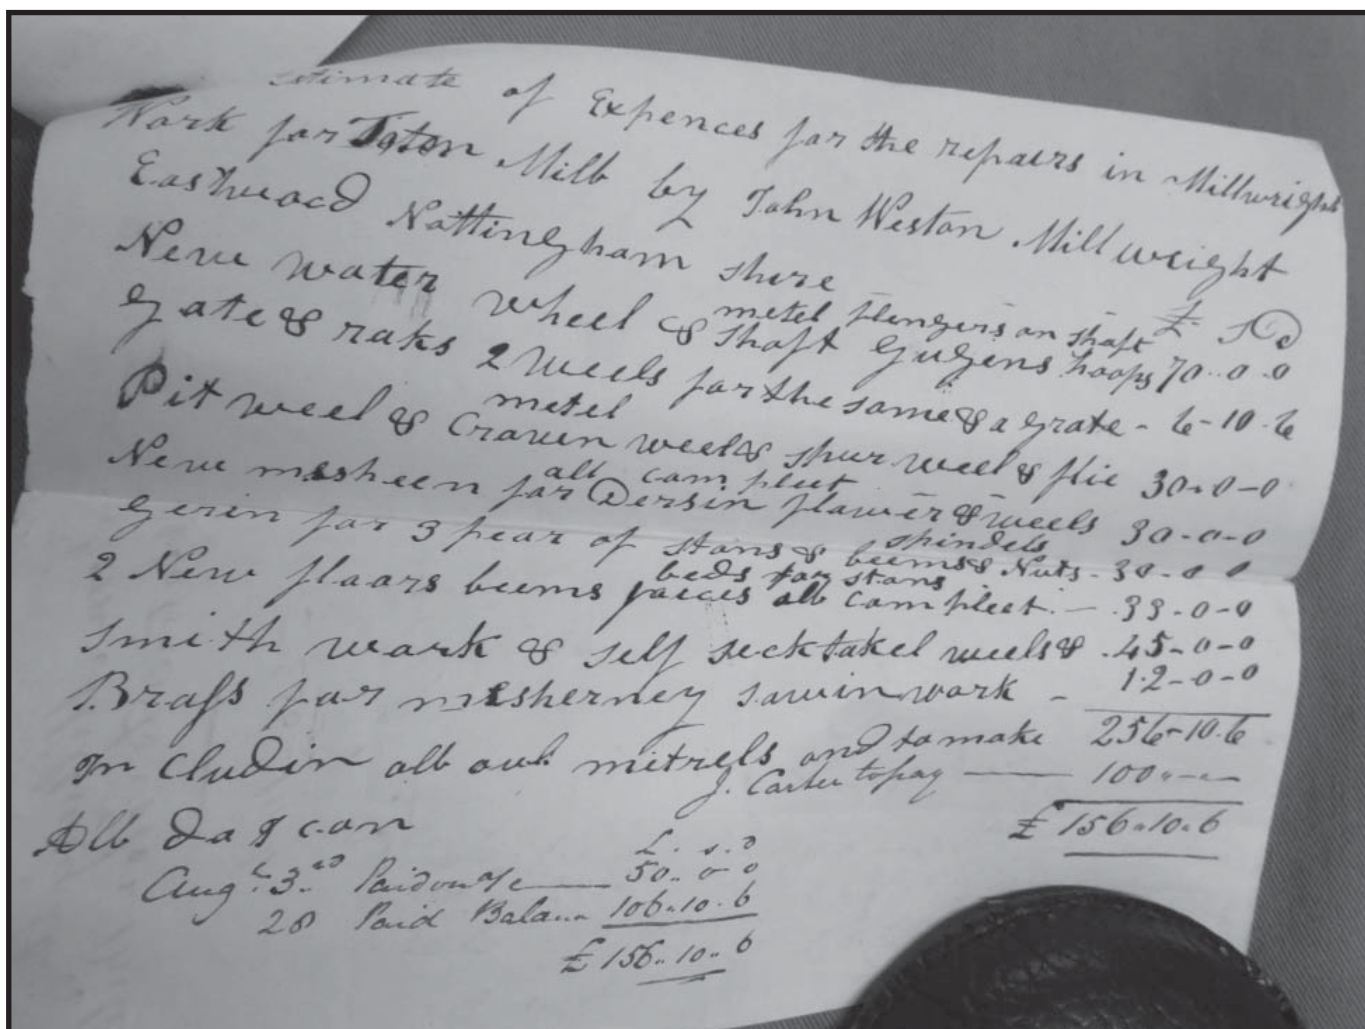 estimate of Expences for the repairs in Millwright
Work for Toton Mill by John Weston Millwright
Eastwood Nottingham shire
£ S D
metel flengers on shaft
New water wheel & shaft Gugens hoops 70-0-0
gate & raks 2 weels for the same & a grate - 6-10-6
metel
Pit weel & Craven weel & spur weel & flie 30-0-0
all compleet
New mesheen for Dersin flawer & weels 30-0-0
spindels
Gerin for 3 pear of stons & beems & Nuts - 30-0-0
beds for stons
2 New floors beems joices all compleet - 33-0-0
Smith work & self secktakel weels & 45-0-0
Brass for mesherney sawin work - 12-0-0
256-10-6
In cludin all out mitrels and to make
J. Carter to pay — 100"-"-
All das can
£ 156"10"6
£ . s . d
Augt. 3rd Paid on a/c — 50" 0-0
28 Paid Balance 106"10-6
£ 156"10"6